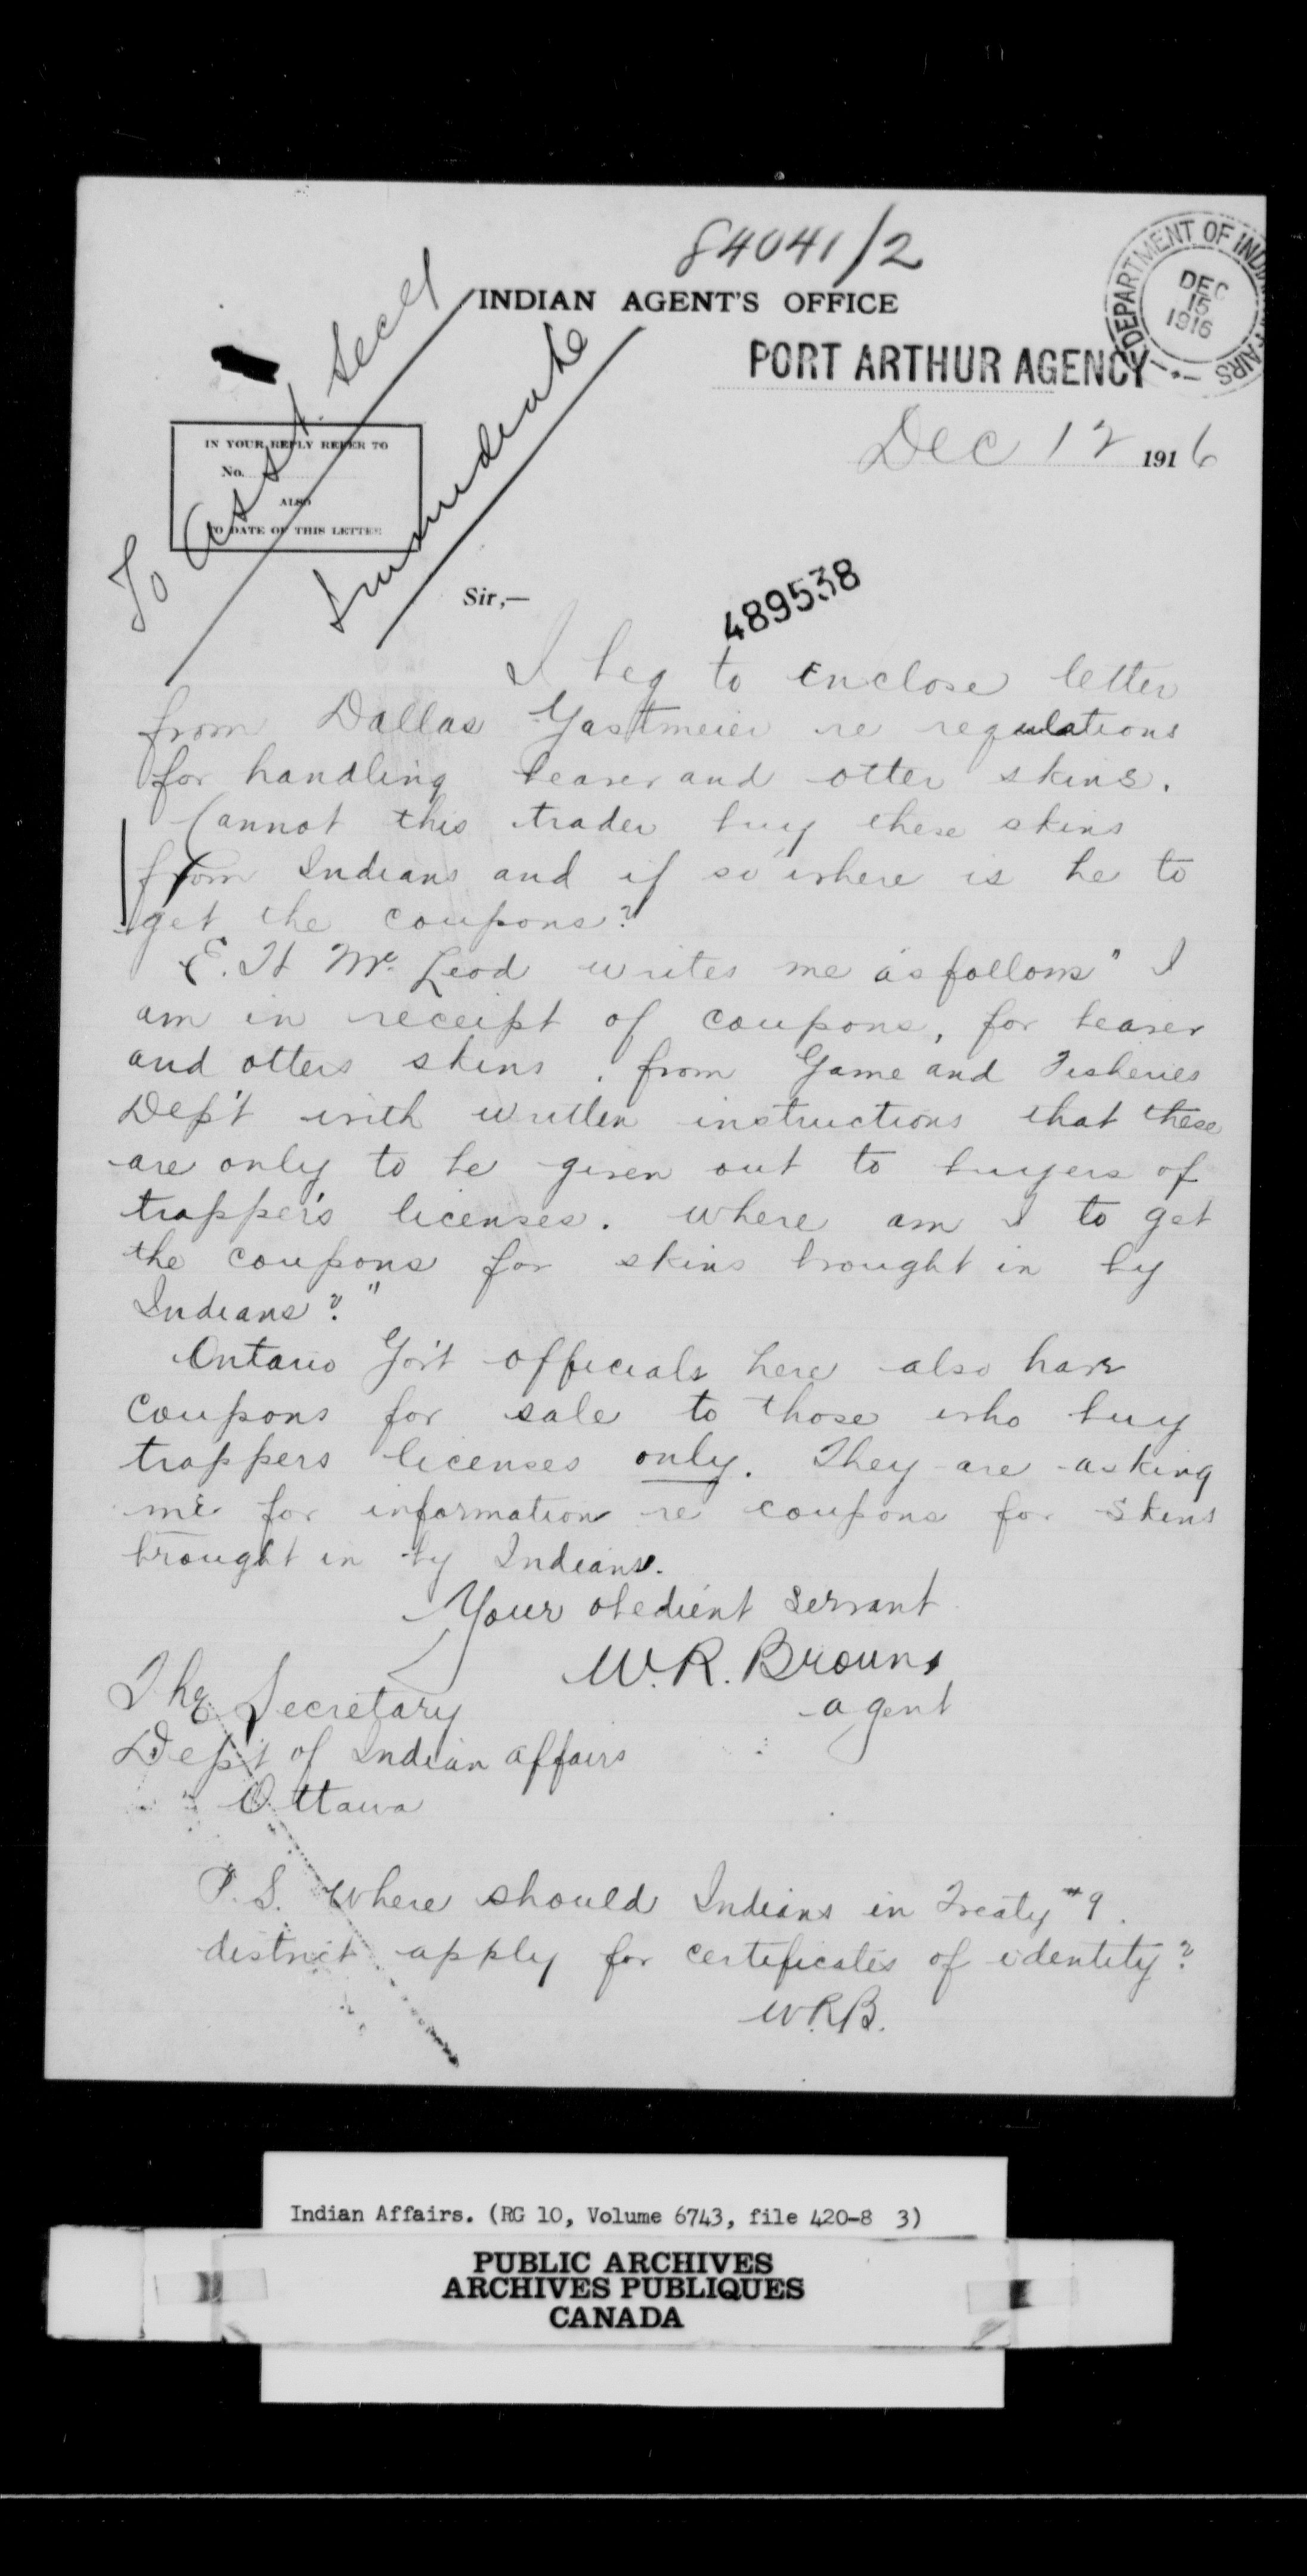 84041/2
INDIAN AGENT'S OFFICE
DEPARTMENT OF INDIAN AFFAIRS
DEC
15
1916
PORT ARTHUR AGENCY
To Asst. Secy
Immediate
IN YOUR REPLY REFER TO
No.
ALSO
TO DATE OF THIS LETTER
Dec 12 1916
Sir,—
489538
I beg to enclose letter
from Dallas Gastmeier re regulations
for handling beaver and otter skins.
Cannot this trader buy these skins
from Indians and if so where is he to
get the coupons?
E. H Mc Leod writes me as follows "I
am in receipt of coupons, for beaver
and otters skins, from Game and Fisheries
Dep't with written instructions that these
are only to be given out to buyers of
trapper's licenses. where am I to get
the coupons for skins brought in by
Indians?"
Ontario Gov't officials here also have
coupons for sale to those who buy
trappers licenses only. They are asking
me for information re coupons for skins
brought in by Indians.
Your obedient servant
W. R. Brown,
agent
The Secretary
Dep't of Indian affairs
Ottawa
P.S. Where should Indians in Treaty #9
district apply for certificates of identity?
W.R.B.
Indian Affairs. (RG 10, Volume 6743, file 420-8 3)
PUBLIC ARCHIVES
ARCHIVES PUBLIQUES
CANADA